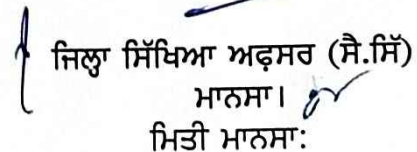 ਜਿਲ੍ਹਾ ਸਿੱਖਿਆ ਅਫ਼ਸਰ (ਸੈ.ਸਿੱ)
ਮਾਨਸਾ।
ਮਿਤੀ ਮਾਨਸਾ: